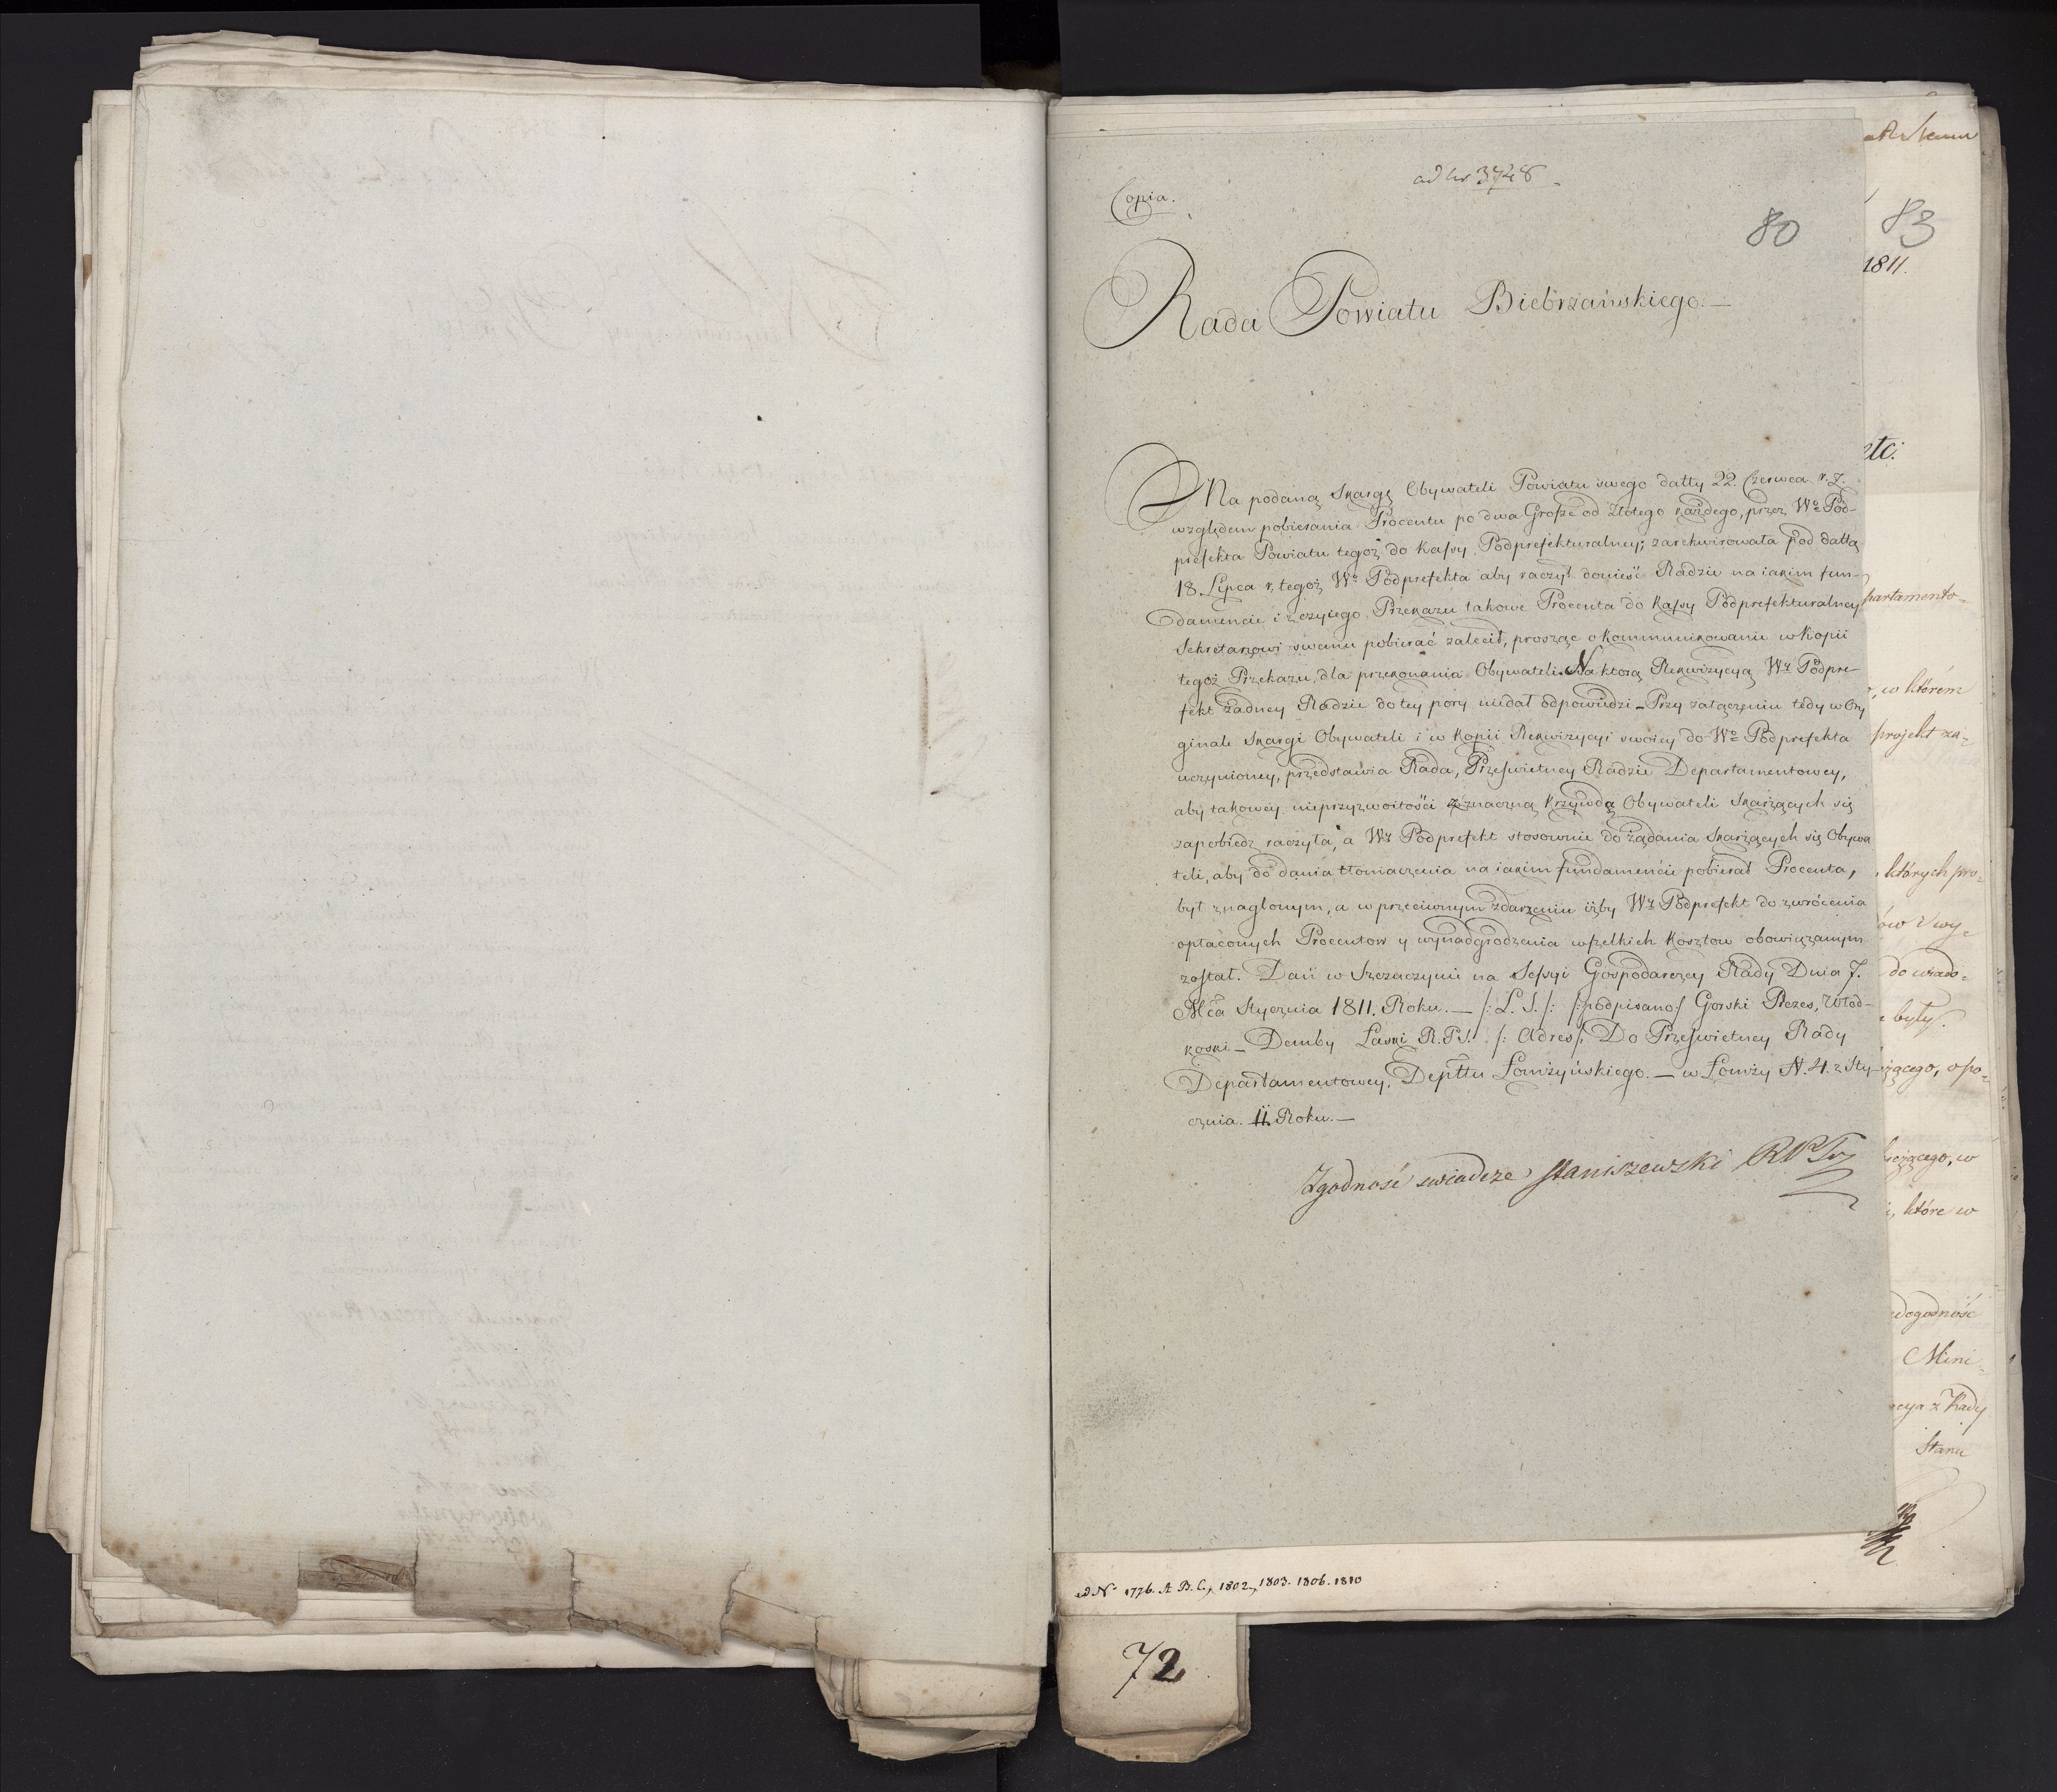 ad Nr 3748
Copia.
80
Rada Powiatu Biebrzańskiego. —
Na podaną Skargę Obywateli Powiatu swego datty 22. Czerwca r. z.
względem pobierania Procentu po dwa Grosze od Złotego każdego, przez Wo Pod-
prefekta Powiatu tegoż do Kassy Podprefekturalney; zarekwirowała pod dattą
18 Lipca r. tegoż Wo Podprefekta aby raczył donieść Radzie na iakim fun-
damencie i z czyiego Przekazu takowe Procenta do Kassy Podprefekturalney
Sekretarzowi swemu pobierać zalecił, prosząc o kommunikowanie w Kopii
tegoż Przekazu, dla przekonania Obywateli. Na ktorą Rekwizycyą Wy Podpre-
fekt żadney Radzie do tey pory niedał odpowiedzi — Przy załączeniu tedy w Ory
ginale Skargi Obywateli i w Kopii Rekwizycyi swoiey do Wo Podprefekta
uczynioney, przedstawia Rada, Przeswietney Radzie Departamentowey,
aby takowey nieprzyzwoitości z znaczną krzywdą Obywateli Skarżących się
zapobiedz raczyła, a Wy Podprefekt stosownie do żądania skarżących się Obywa
teli, aby do dania tłomaczenia na iakim fundamencie pobierał Procenta,
był znaglonym, a w przeciwnym zdarzeniu iżby Wy Podprefekt do zwrócenia
opłaconych Procentow y wynadgrodzenia wszelkich kosztow obowiązanym
został. Dan w Szczuczynie na Sessyi Gospodarczey Rady Dnia 7.
Mca Stycznia 1811. Roku. — /: L. S. /: /: podpisano :/ Gorski Prezes, Włod-
koski — Demby Laski R. P. S. /: Adres /: Do Przeswietney Rady
Departamentowey, Depttu Łomżyńskiego. — w Łomży N. 4. z Sty-
cznia. 11. Roku. —
Zgodność swiadcze Staniszewski
83
1811.
etc:
partamento-
w którém
projekt za-
których pro-
do wiado-
były.
żącego, o po-
żącego, w
które w
dogodność
Mini-
cya z Rady
Stanu
ad No 1776. A B. C, 1802, 1803. 1806. 1810
72